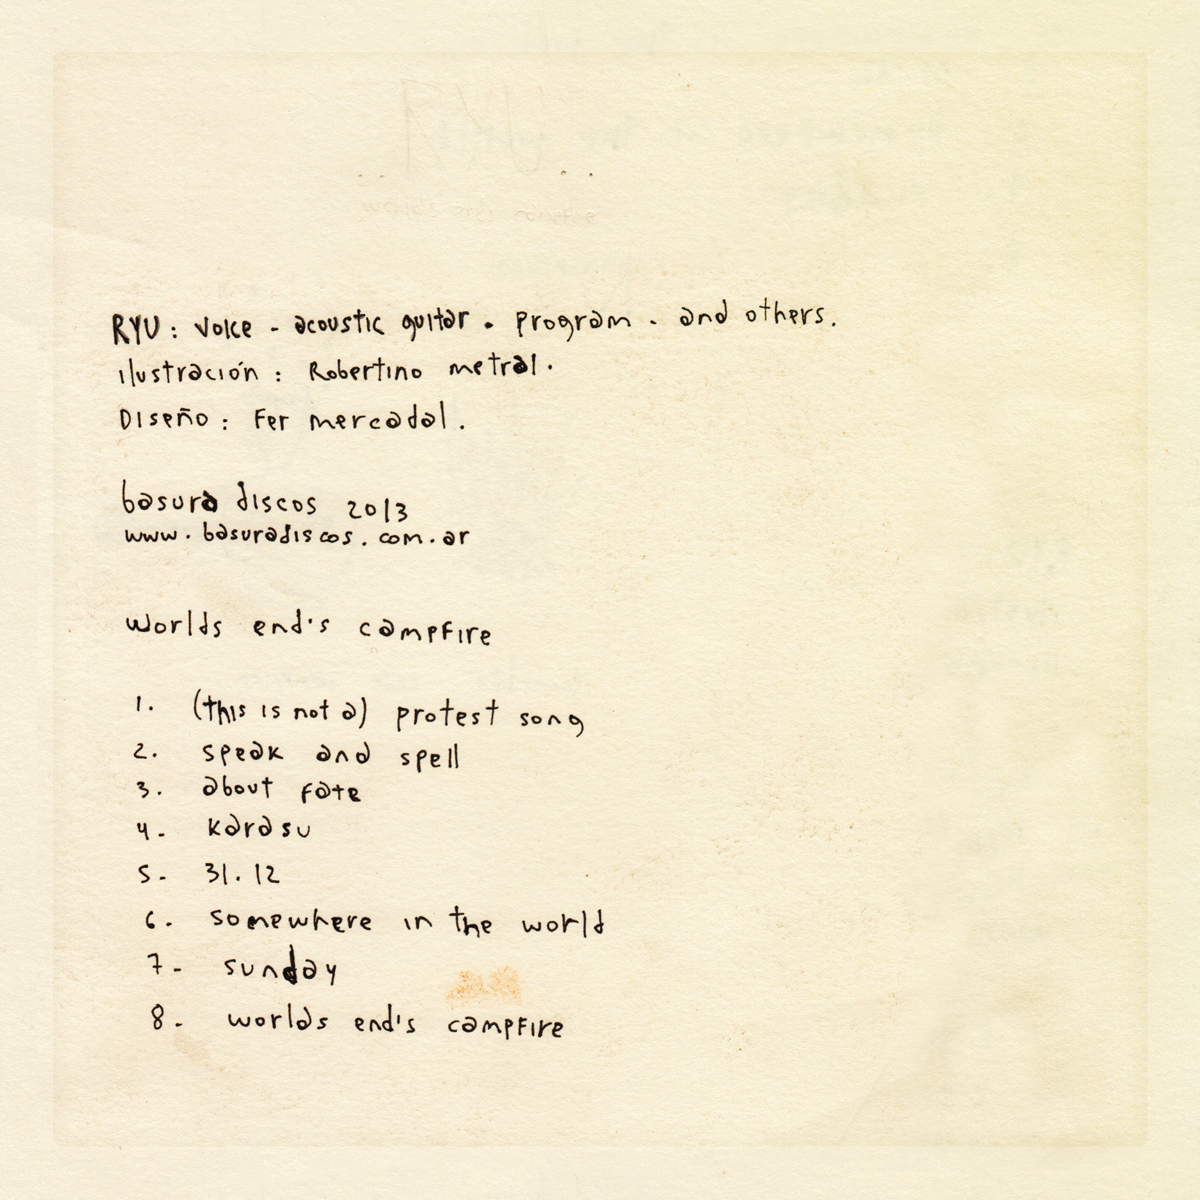 RYU: voice - acoustic guitar. program. and others.
ilustración: Robertino metral.
Diseño: Fer mercadal.
basura discos 2013
www.basuradiscos.com.ar
worlds end's campfire
1. (this is not a) protest song
2. speak and spell
3. about fate
4. karasu
5. 31.12
6. somewhere in the world
7- sunday
8- worlds end's campfire